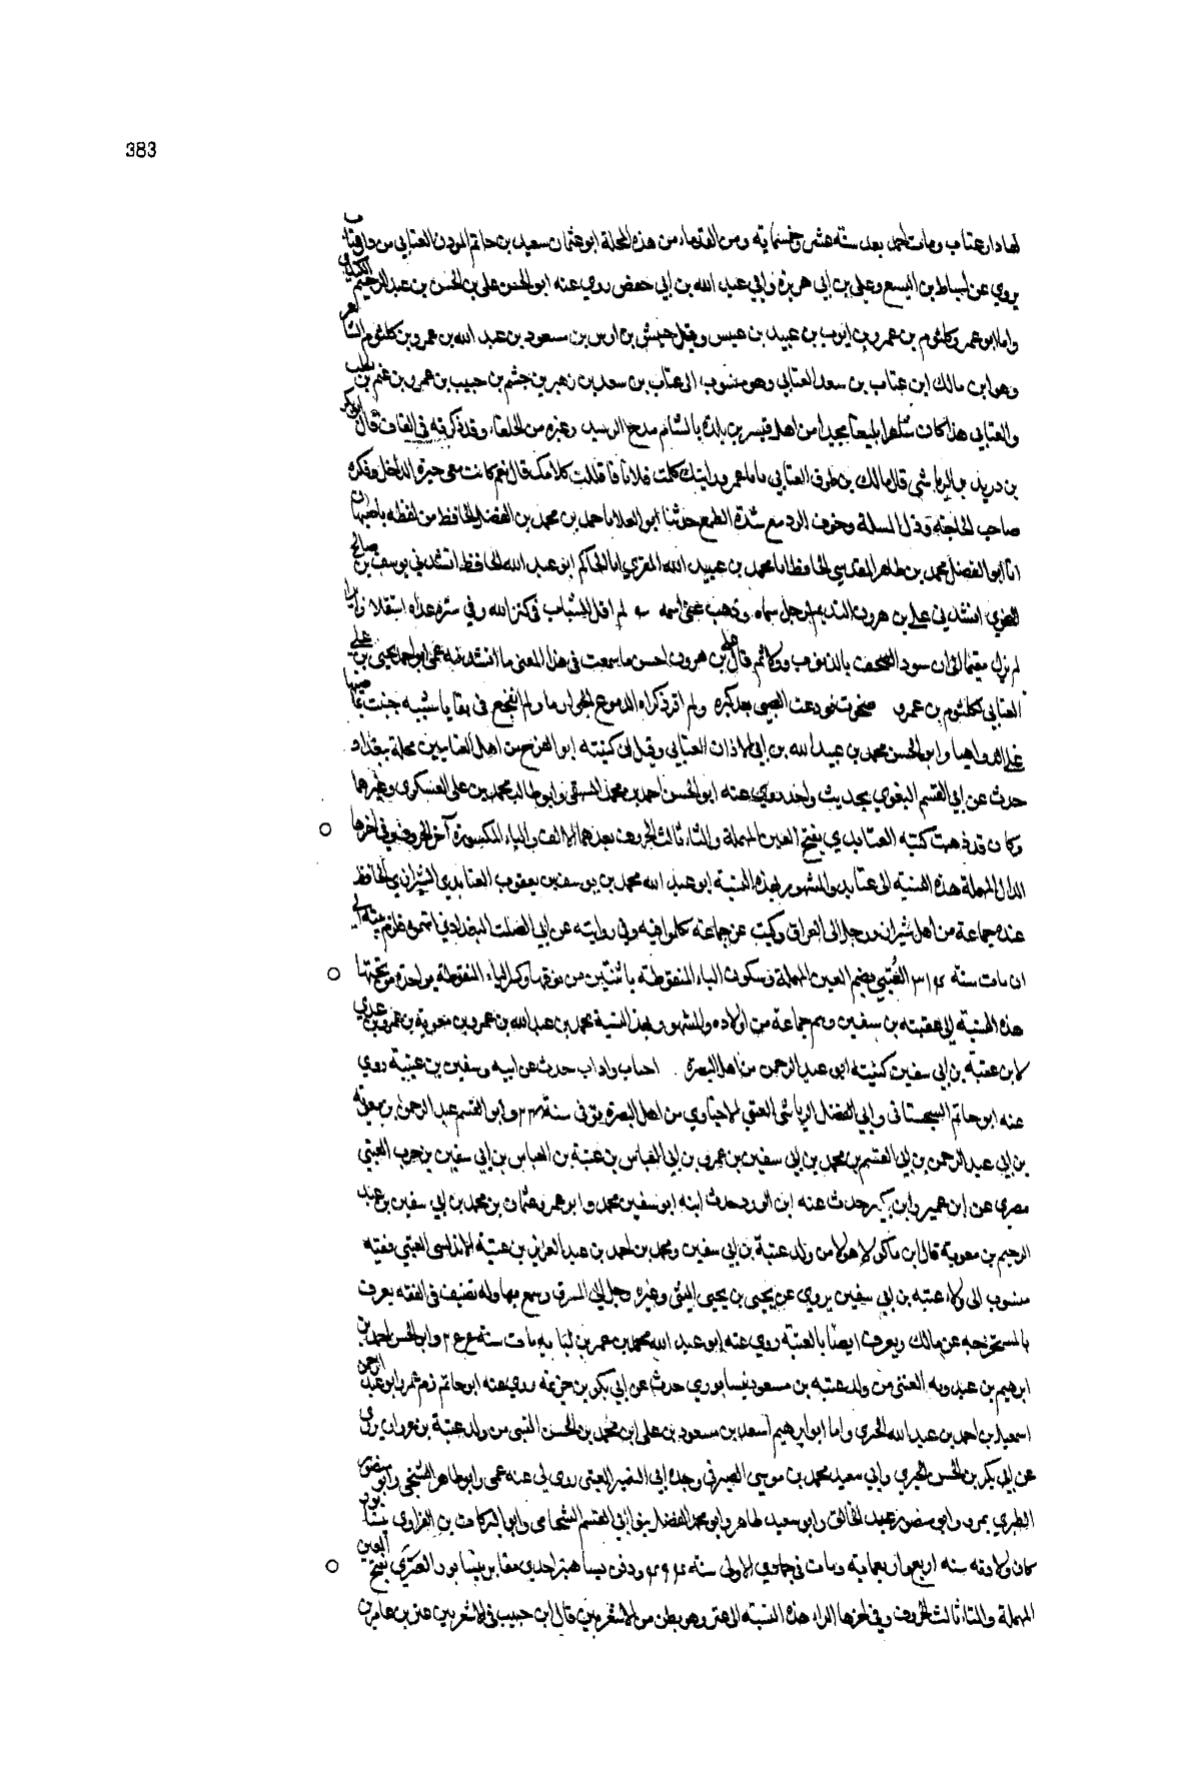 383
لها دار عتاب ومات احمد بعد سنة عشر وخمسماية ومن القدماء من هذه المحلة ابو عثمان سعيد بن حاتم المودن العتابي من دار عتاب
يروي عن اسباط بن اليسع وعلي بن ابي هريرة وابي عبد الله بن ابي حفص روي عنه ابو الحسن علي بن الحسن بن عبد الرحيم الكندي
واما ابو عمرو كلثوم بن عمرو بن ايوب بن عبيد بن حبيس وقيل حبيش بن اوس بن مسعود بن عبد الله بن عمرو بن كلثوم الشاعر
وهو ابن مالك ابن عتاب بن سعد العتابي وهو منسوب الى عتاب بن سعد بن زهير بن جشم بن حبيب بن عمرو بن غنم بن تغلب
والعتابي هذا كان شاعرا بليغا مجيدا من اهل قنسرين بلدة بالشام مدح الرشيد وغيره من الخلفاء وقد ذكرته في القاف قال ابو بكر
بن دريد الرياشي قال مالك بن طوق العتابي يابا عمرو رايتك كلمت فلانا فاقللت كلامك قال نعم كانت معي حيرة الداخل وفكرة
صاحب الحاجة وذل المسلة وخوف الرد مع شدة الطمع حدثنا ابو العلا احمد بن محمد بن الفضل الحافظ من لفظه باصبهان
انا ابو الفضل محمد بن طاهر المقدسي الحافظ انا محمد بن عبيد الله المقري انا الحاكم ابو عبد الله الحافظ انشدني يوسف بن صالح
انشدني علي بن هرون النديم لرجل سماه وذهب عني اسمه
لم يزل مقيما الى ان سود الصحف بالذنوب وولا ثم قال علي بن هرون احسن ما سمعت في هذا المعنى ما انشدنيه عمي ابو احمد يحيى بن علي
العتابي كلثوم بن عمرو ولم اقر ذكراه الدموع الجواريا ولم انفجع في بقايا شبيبة
وابو الحسن محمد بن عبيد الله بن العتابي وقيل ان كنيته ابو الفرج من اهل العتابيين محلة ببغداد
حدث عن ابي القسم البغوي بحديث واحد روي عنه ابو الحسن احمد بن محمد العتيقي وابو طالب محمد بن علي العسكري وغيرهما
وكان قد ذهبت كتبه العتايدي بفتح العين المهملة والتاء ثالث الحروف بعدهما الالف والياء المكسورة آخر الحروف وفي آخرها
الدال المهملة هذه النسبة الى عتايد والمشهور بهذه النسبة ابو عبد الله محمد بن يوسف بن يعقوب العتايدي الشيرازي الحافظ
عنده جماعة من اهل شيراز ورحل الى العراق وكتب عن جماعة تكلموا فيه وفي روايته عن ابي الصلت البغدادي
ان مات سنة العتبي بضم العين المهملة وسكون التاء المنقوطة باثنتين من فوقها وكسر الباء المنقوطة بواحدة من تحتها
هذه النسبة الى عتبة بن سفين وهم جماعة من اولاده والمشهور بهذه النسبة محمد بن عبد الله بن عمرو بن معوية بن عمرو بن
لابن عتبة بن ابي سفين كنيته ابو عبد الرحمن من اهل البصرة واداب حدث عن ابيه وسفين بن عيينة روي
عنه ابو حاتم السجستاني وابي الفضل الرياشي العتبي الاخباري من اهل البصرة توفي سنة وابو القسم عبد الرحمن بن معوية
بن ابي عبد الرحمن بن ابي القسم بن محمد بن ابي سفين بن عمرو بن ابي العباس بن عتبة بن العباس بن ابي سفين بن حرب العتبي
مصري عن ابن عمير وابن بكير حدث عنه ابن الورد حدث ابنه ابو سفين محمد وابو عمرو عثمان بن محمد بن ابي سفين بن عبد
الرحيم بن معوية قال ابن ماكولا هولا من ولد عتبة بن ابي سفين ومحمد بن احمد بن عبد العزيز بن عتبة الاندلسي العتبي فقيه
منسوب الى ولاء عتبة بن ابي سفين يروي عن يحيى بن يحيى الليثي وغيره رحل الى الشرق وسمع بها وله تصنيف في الفقه يعرف
بالمستخرجه عن مالك ويعرف ايضا بالعتبية روي عنه ابو عبد الله محمد بن عمر بن لبابة مات سنة وابو الحسن احمد بن
ابرهيم بن عبدويه العتبي من ولد عتبة بن مسعود نيسابوري حدث عن ابي بكر بن خزيمة روي عنه ابو حاتم وابو عبد الرحمن
اسمعيل بن احمد بن عبد الله الحيري واما ابو ابرهيم اسعد بن مسعود بن علي بن محمد بن الحسن العتبي من ولد عتبة بن غزوان روي
عن ابي بكر بن الحسن الحيري وابي سعيد محمد بن موسى الصيرفي وجده ابي النصر العتبي روي لي عنه عمي وابو طاهر السنجي وابو منصور
الطبري بمرو وابو منصور عبد الخالق وابو سعيد طاهر وابو محمد الفضل بنو ابي القسم الشحامي وابو البركات بن الفراوي بنيسابور
كان ولادته سنة اربع واربعماية ومات في جمادي الاولى سنة ودفن احدى مقابر نيسابور العتري بفتح العين
المهملة والتاء ثالث الحروف وفي اخرها الراء هذه النسبة الى عتر وهو بطن من الاشعريين قال ابن حبيب في الاشعريين عتر بن عامر بن